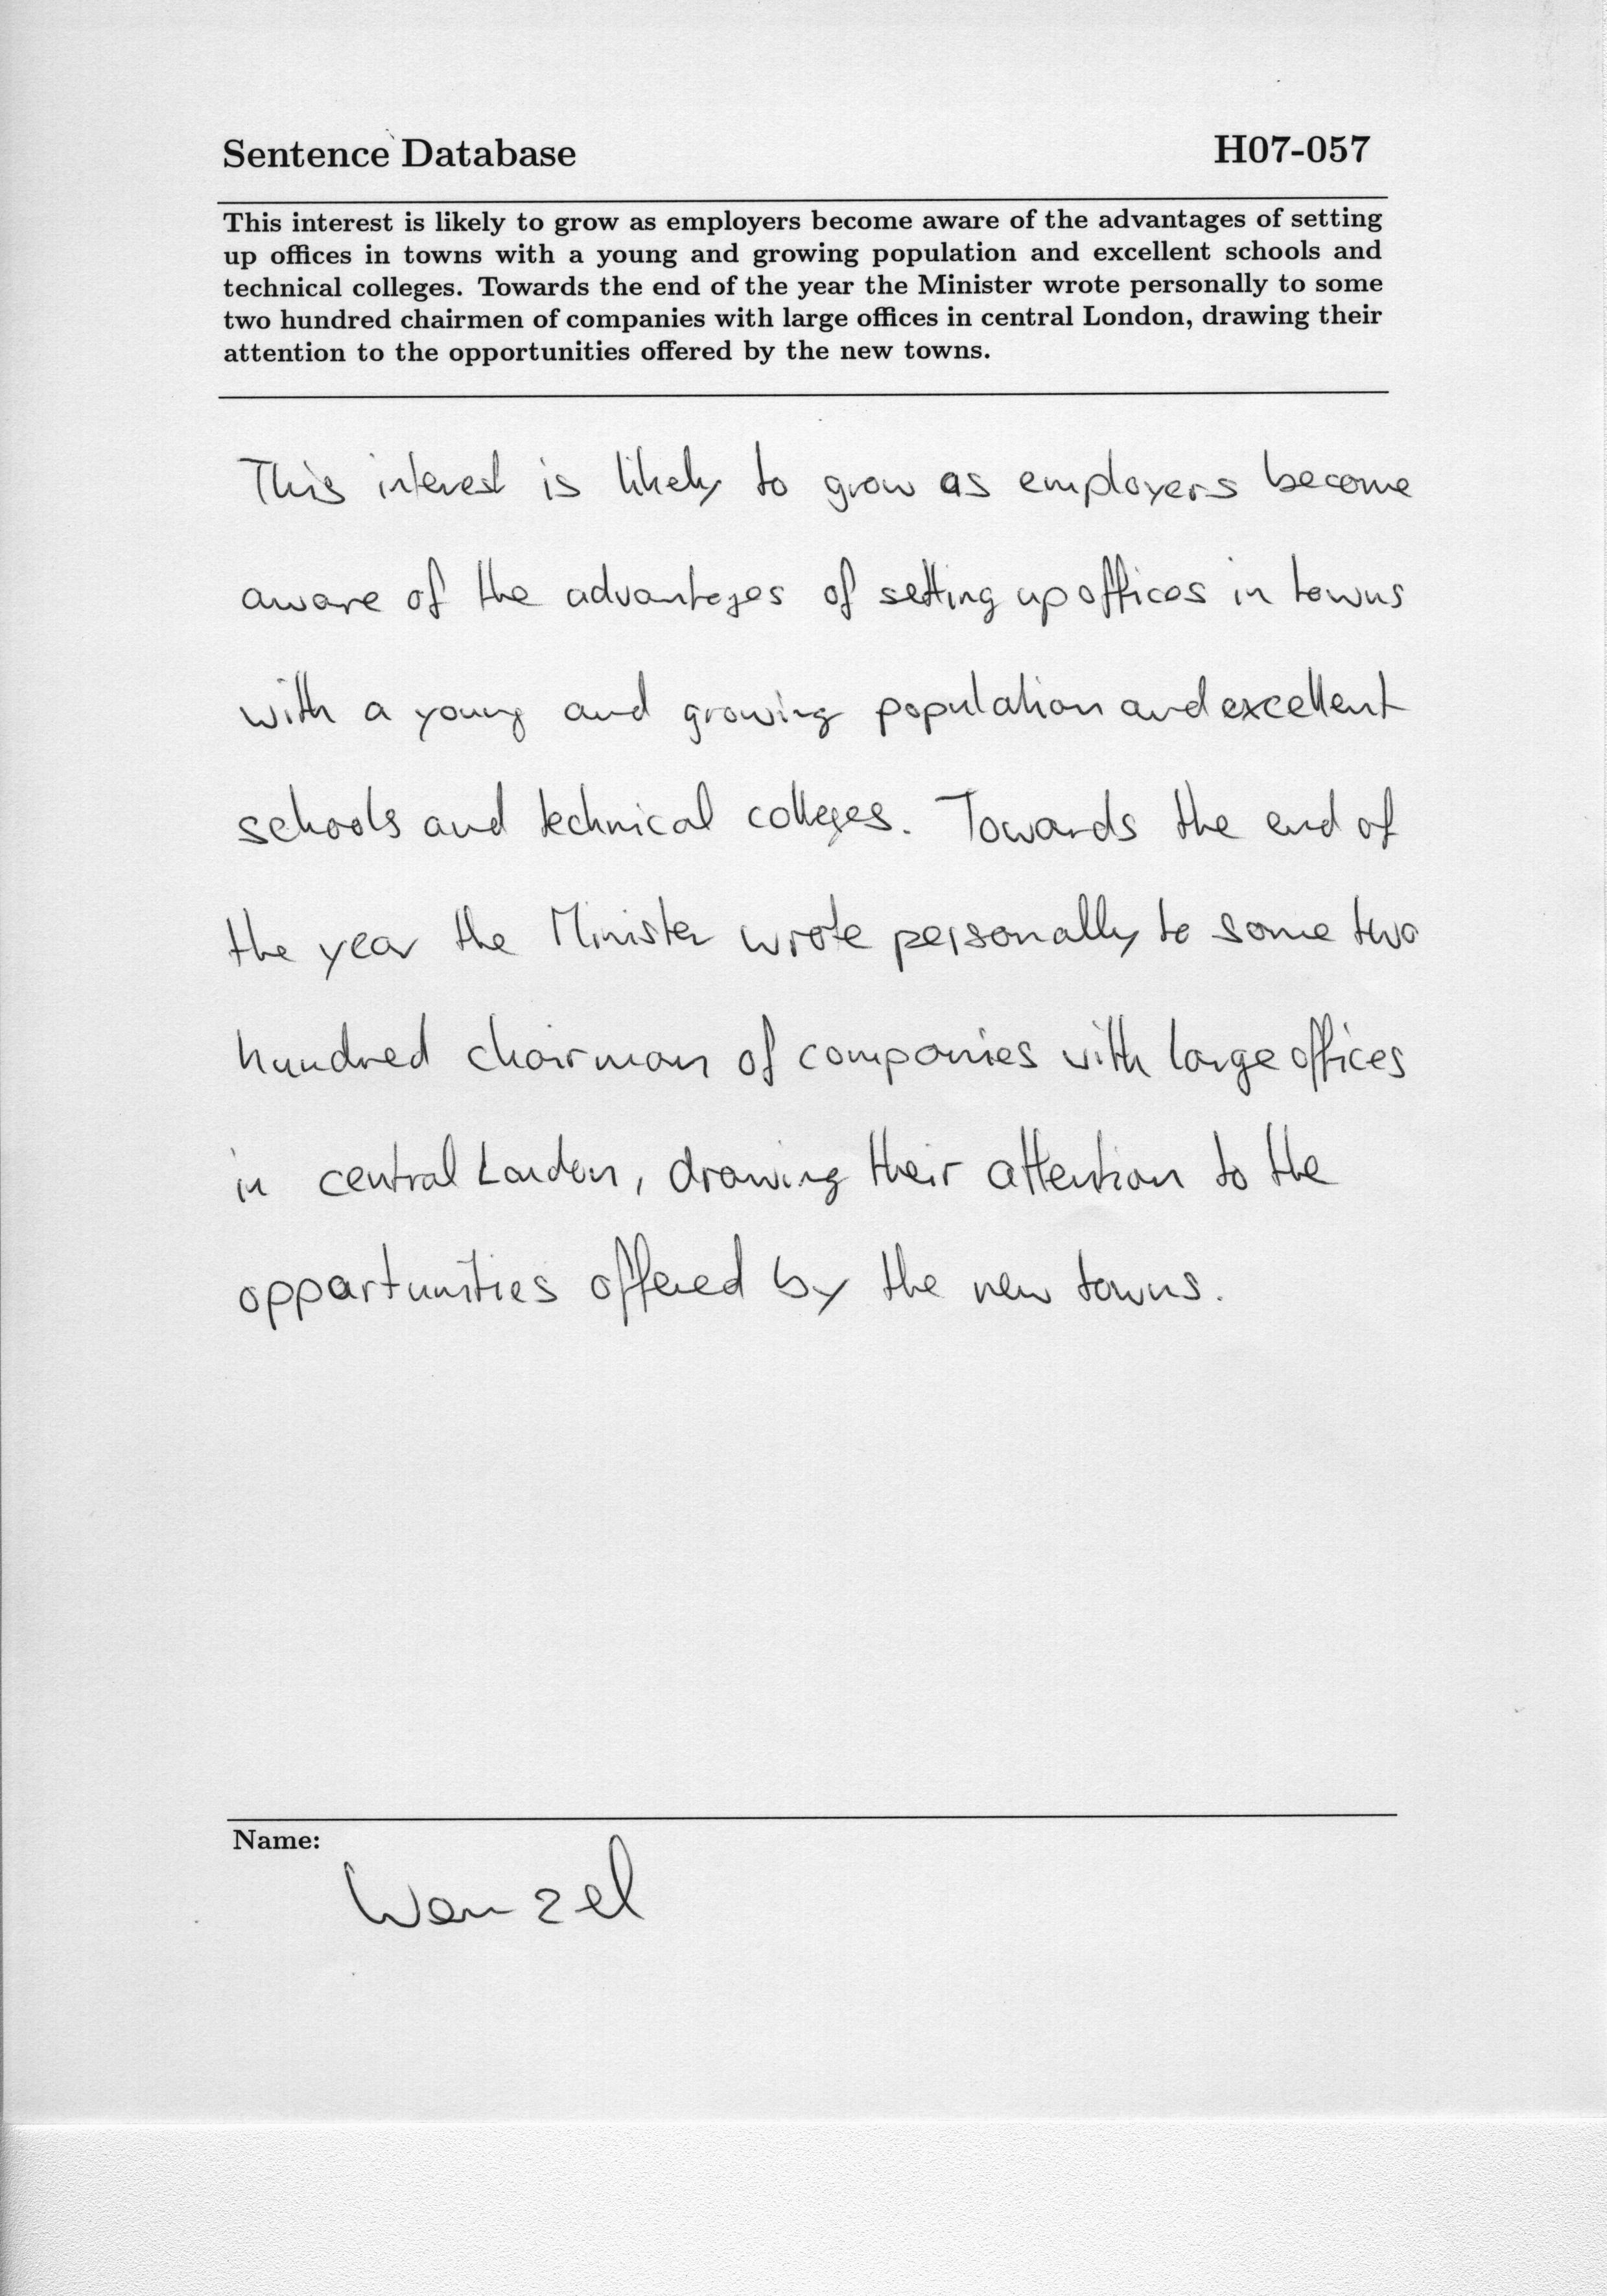 Sentence Database H07-057
This interest is likely to grow as employers become aware of the advantages of setting
up offices in towns with a young and growing population and excellent schools and
technical colleges. Towards the end of the year the Minister wrote personally to some
two hundred chairmen of companies with large offices in central London, drawing their
attention to the opportunities offered by the new towns.
This interest is likely to grow as employers become
aware of the advantages of setting up offices in towns
with a young and growing population and excellent
schools and technical colleges. Towards the end of
the year the Minister wrote personally to some two
hundred chairman of companies with large offices
in central London, drawing their attention to the
opportunities offered by the new towns.
Name:
Wenzel